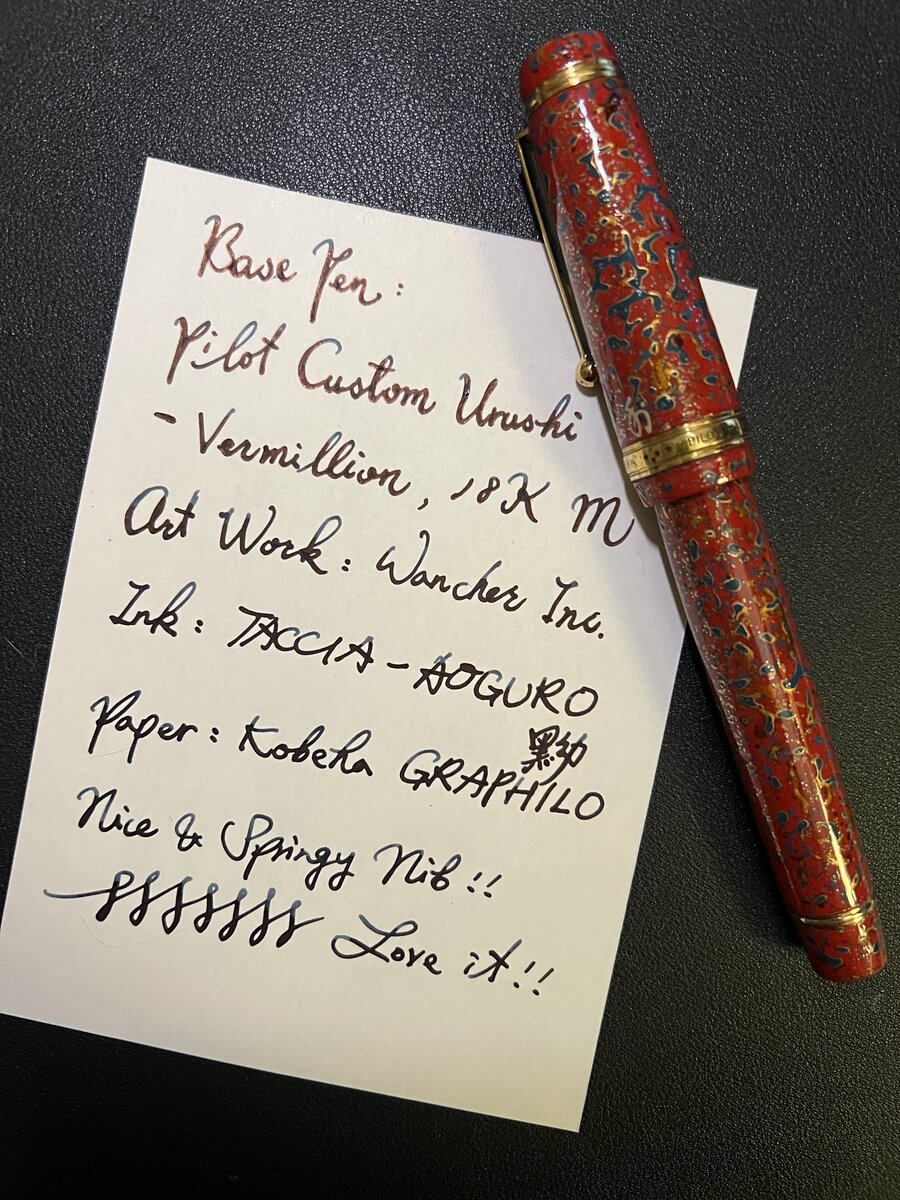 Base Pen :
Pilot Custom Urushi
- Vermillion , 18K M
Art Work : Wancher Inc.
Ink : TACCIA - AOGURO
黝
Paper : Kobeha GRAPHILO
Nice & Springy Nib !!
Love it !!
PILOT